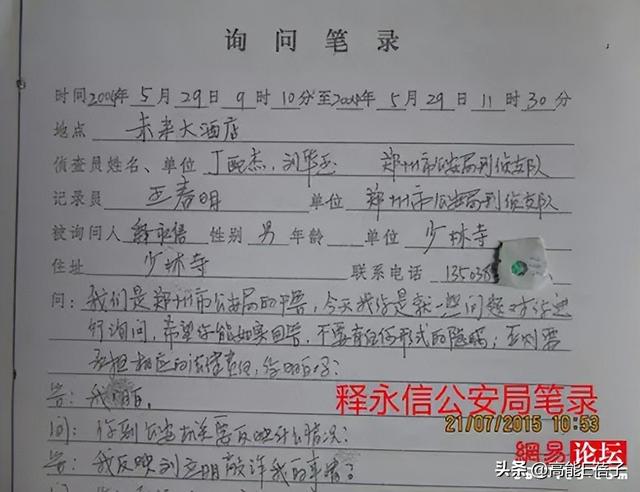 询问笔录
时间2004年5月29日9时10分至2004年5月29日11时30分
地点 未来大酒店
侦查员姓名、单位 丁 杰、刘华玉 郑州市公安局刑侦支队
记录员 王春明 单位 郑州市公安局刑侦支队
被询问人 释永信 性别 男 年龄 单位 少林寺
住址 少林寺 联系电话 13503
问：我们是郑州市公安局的干警，今天找你是就一些问题对你进
行询问，希望你能如实回答，不要有任何形式的隐瞒，否则需
承担相应的法律责任，你明白吗？
答：我明白。
释永信公安局笔录
问：你到公安机关要反映什么情况？
21/07/2015 10:53
答：我反映刘立明敲诈我的事情？
網易论坛
头条 @高能E蓓子